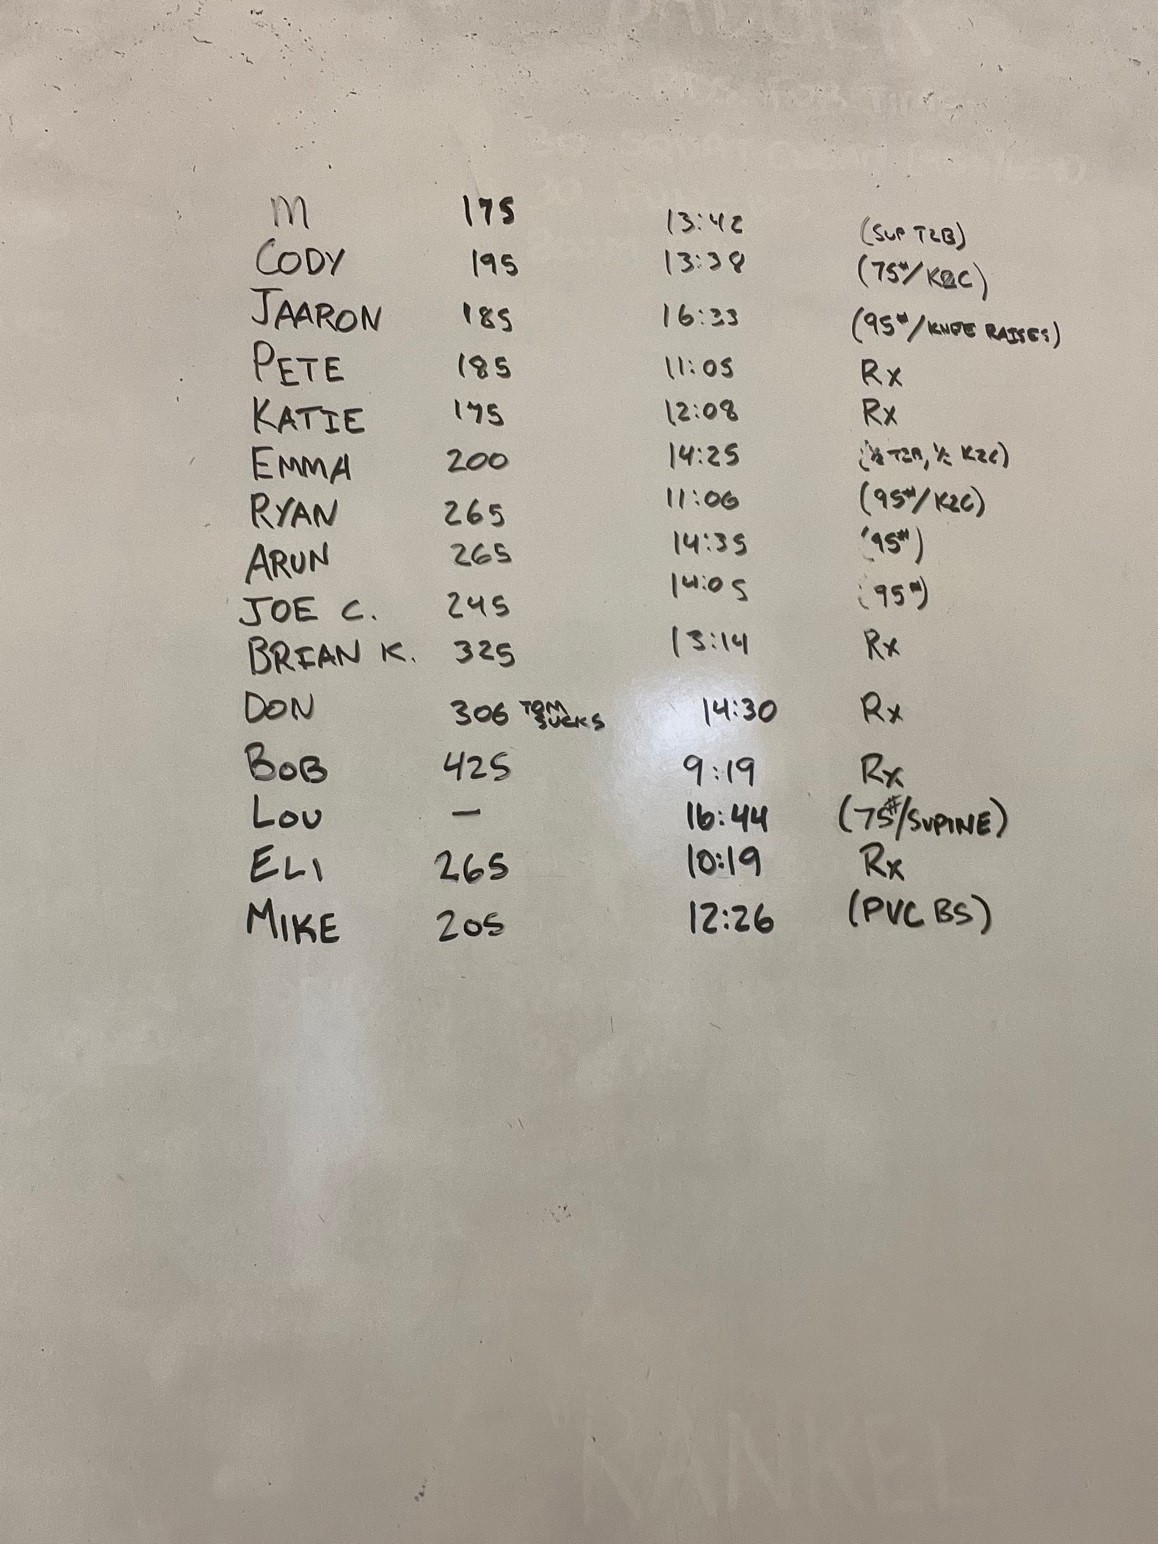 M 175 13:42 (SUP T2B)
CODY 195 13:38 (75#/K2C)
JAARON 185 16:33 (95#/KNEE RAISES)
PETE 185 11:05 Rx
KATIE 175 12:08 Rx
EMMA 200 14:25 (½ T2B, ½ K2C)
RYAN 265 11:06 (95#/K2C)
ARUN 265 14:35 (95#)
JOE C. 245 14:05 (95#)
BRIAN K. 325 13:14 Rx
DON 306 TOM SUCKS 14:30 Rx
BOB 425 9:19 Rx
LOU — 16:44 (75#/SUPINE)
ELI 265 10:19 Rx
MIKE 205 12:26 (PVC BS)